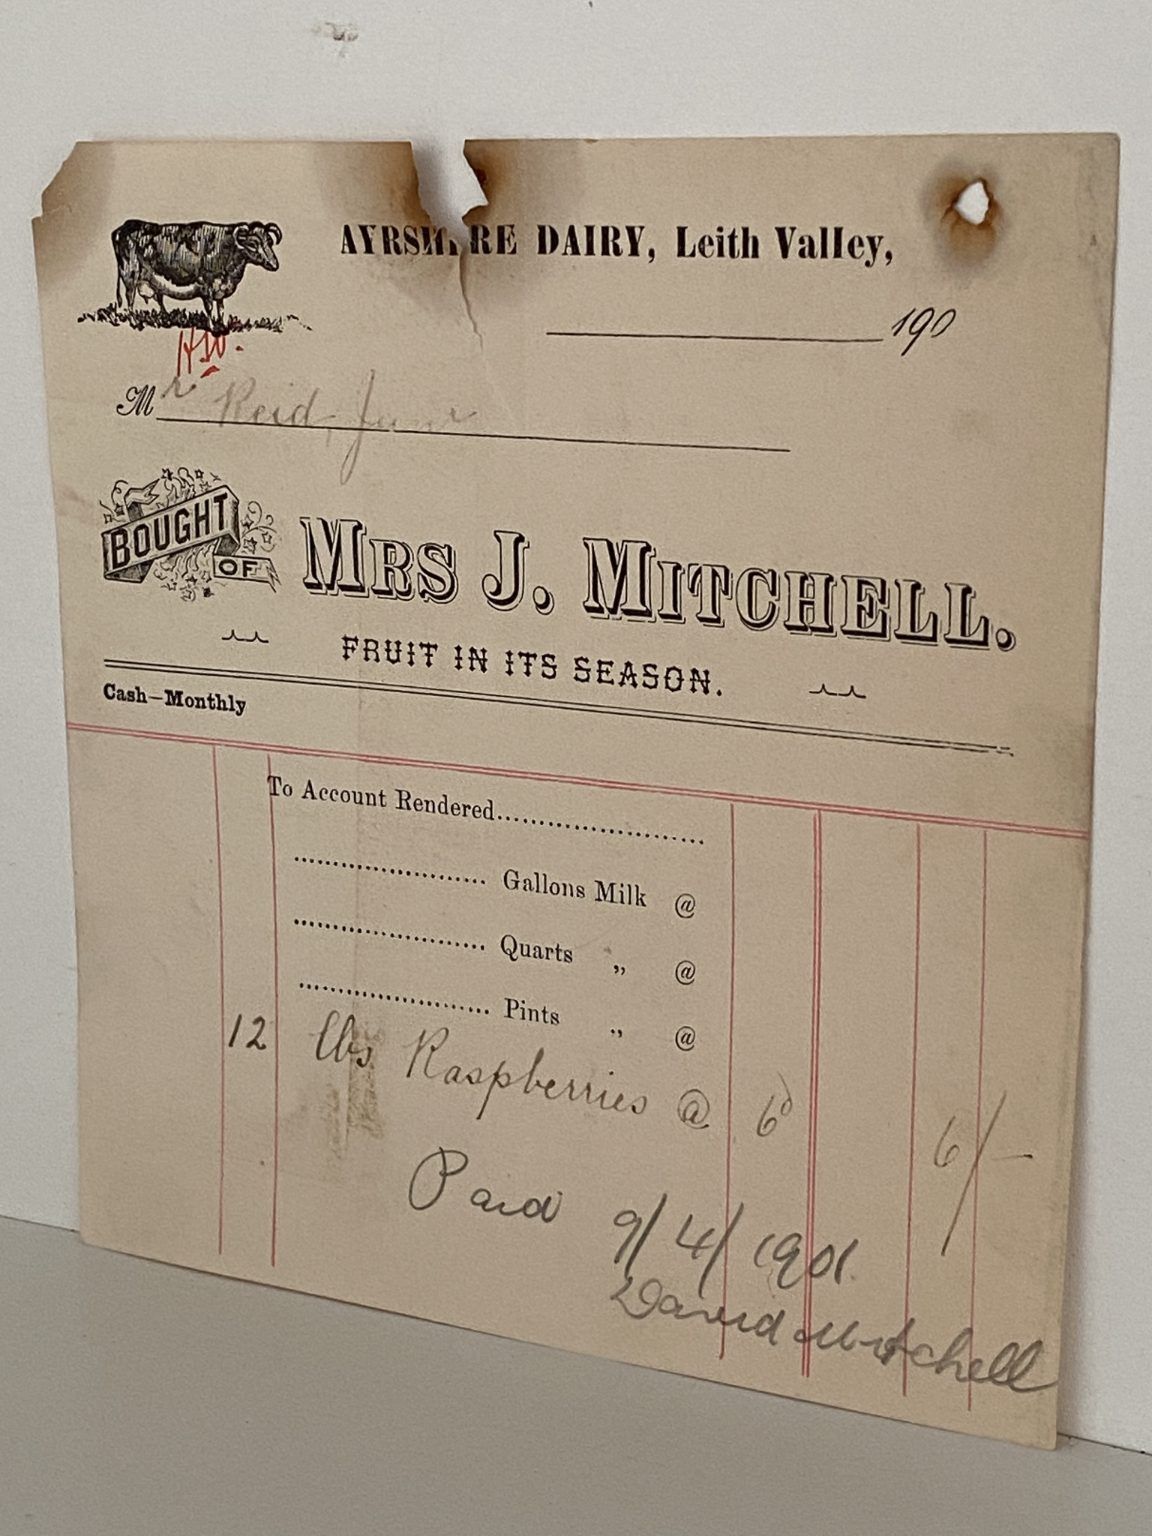 AYRSHIRE DAIRY, Leith Valley,
190
H.W.
Mr Reid, Junr
BOUGHT OF MRS J. MITCHELL.
FRUIT IN ITS SEASON.
Cash–Monthly
To Account Rendered........................
........................ Gallons Milk @
........................ Quarts „ @
........................ Pints „ @
12 lbs Raspberries @ 6d 6/-
Paid 9/4/1901.
David Mitchell